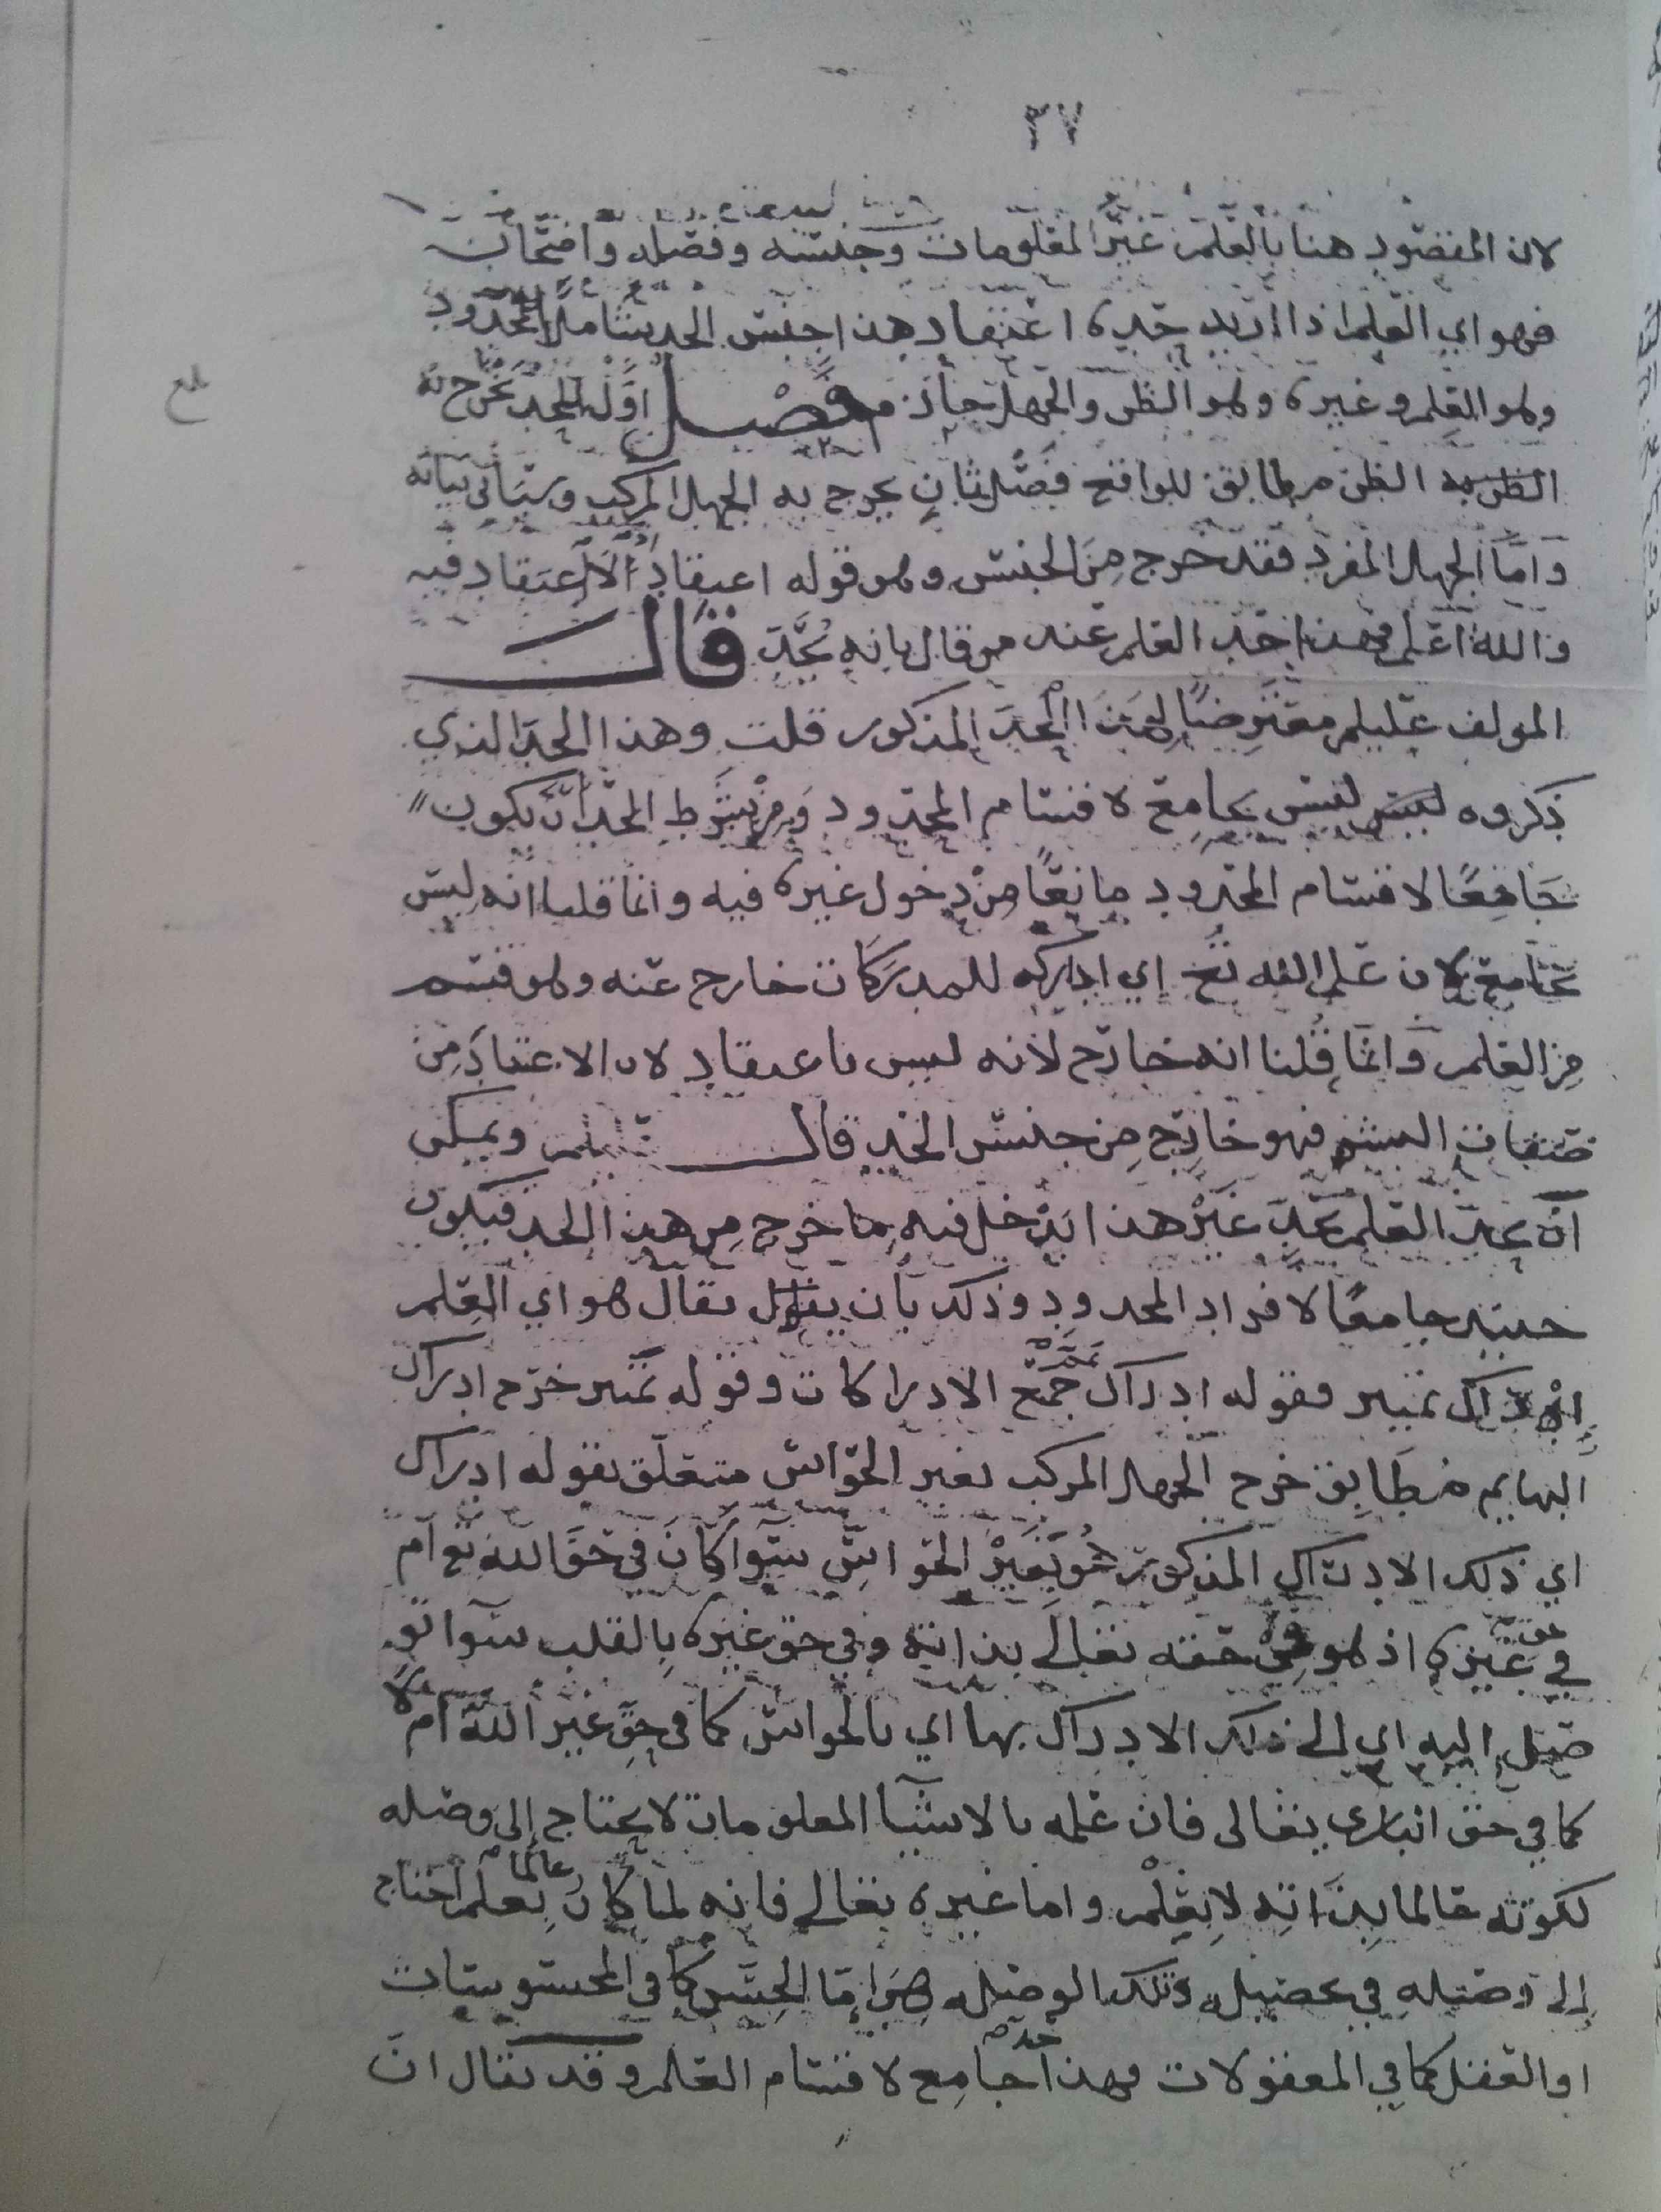 ٣٧
لان المقصود هنا بالعلم غير المعلومات وجنسه وفصله
فهو اي العلم اذا اريد حده اعتقاد هذا جنس الحد شاملا للمحدود
بلغ
وهو العلم وغيره وهو الظن والجهل جازم فصل اول للحد يخرج به
الظن مطابق للواقع فصل ثان يخرج به الجهل المركب وسياتي بيانه
واما الجهل المفرد فقد خرج من الجنس وهو قوله اعتقاد اذ لا اعتقاد فيه
والله اعلم فهذا حد العلم عند من قال بانه يحد قال
المولف عليلم معترضا لهذا الحد المذكور قلت وهذا الحد الذي
ذكروه ليس بجامع لاقسام المحدود ومن شرط الحد ان يكون
جامعا لاقسام المحدود مانعا من دخول غيره فيه وانما قلنا انه ليس
بجامع لان علم الله تع اي ادراكه للمدركات خارج عنه وهو قسم
من العلم وانما قلنا انه خارج لانه ليس باعتقاد لان الاعتقاد من
صفات البشر فهو خارج من جنس الحد قال عليلم ويمكن
ان يحد العلم بحد غير هذا يدخل فيه ما خرج من هذا الحد فيكون
حينئذ جامعا لافراد المحدود وذلك بان يقال هو اي العلم
ادراك تمييز فقوله ادراك جمع الادراكات وقوله تمييز خرج ادراك
البهايم مطابق خرج الجهل المركب بغير الحواس متعلق بقوله ادراك
اي ذلك الادراك المذكور هو بغير الحواس سوا كان في حق الله تع ام
في حق غيره اذ هو في حقه تعالى بذاته وفي حق غيره بالقلب سوا تو
صل اليه اي الى ذلك الادراك بها اي بالحواس كما في حق غير الله ام لا
كما في حق الباري تعالى فان علمه بالاشيا المعلومات لا يحتاج الى وصله
لكونه عالما بذاته لا بعلم واما غيره تعالى فانه لما كان عالما بعلم احتاج
الى وصله في تحصيله وتلك الوصله هي اما الحس كما في المحسوسات
او العقل كما في المعقولات فهذا حد جامع لاقسام العلم وقد يقال ان